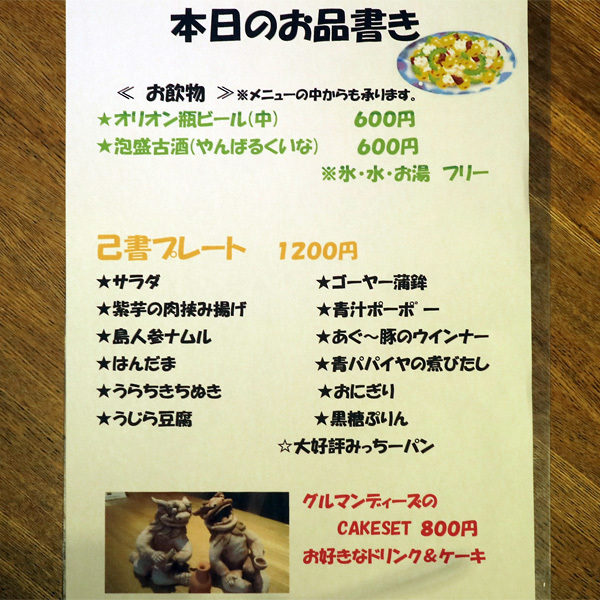 本日のお品書き
≪ お飲物 ≫※メニューの中からも承ります。
★オリオン瓶ビール(中) 600円
★泡盛古酒(やんばるくいな) 600円
※氷・水・お湯 フリー
己書プレート 1200円
★サラダ ★ゴーヤー蒲鉾
★紫芋の肉挟み揚げ ★青汁ポーポー
★島人参ナムル ★あぐ～豚のウインナー
★はんだま ★青パパイヤの煮びたし
★うらちきちぬき ★おにぎり
★うじら豆腐 ★黒糖ぷりん
☆大好評みっちーパン
グルマンディーズの
CAKESET 800円
お好きなドリンク＆ケーキ